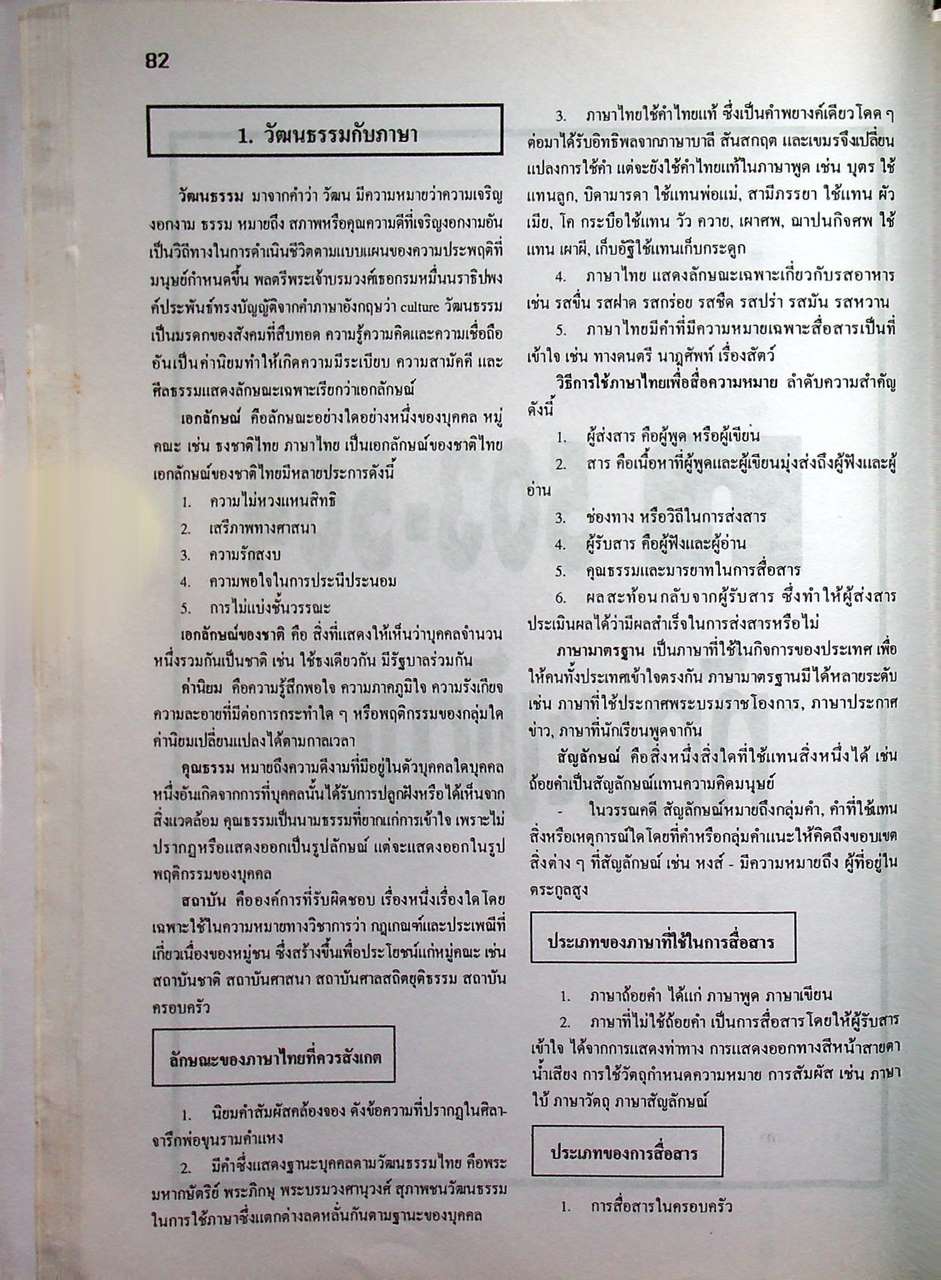 82
1. วัฒนธรรมกับภาษา
วัฒนธรรม มาจากคำว่า วัฒน มีความหมายว่าความเจริญ
งอกงาม ธรรม หมายถึง สภาพหรือคุณความดีที่เจริญงอกงามอัน
เป็นวิถีทางในการดำเนินชีวิตตามแบบแผนของความประพฤติที่
มนุษย์กำหนดขึ้น พลตรีพระเจ้าบรมวงศ์เธอกรมหมื่นนราธิปพง
ค์ประพันธ์ทรงบัญญัติจากคำภาษาอังกฤษว่า culture วัฒนธรรม
เป็นมรดกของสังคมที่สืบทอด ความรู้ความคิดและความเชื่อถือ
อันเป็นค่านิยมทำให้เกิดความมีระเบียบ ความสามัคคี และ
ศีลธรรมแสดงลักษณะเฉพาะเรียกว่าเอกลักษณ์
เอกลักษณ์ คือลักษณะอย่างใดอย่างหนึ่งของบุคคล หมู่
คณะ เช่น ธงชาติไทย ภาษาไทย เป็นเอกลักษณ์ของชาติไทย
เอกลักษณ์ของชาติไทยมีหลายประการดังนี้
1. ความไม่หวงแหนสิทธิ
2. เสรีภาพทางศาสนา
3. ความรักสงบ
4. ความพอใจในการประนีประนอม
5. การไม่แบ่งชั้นวรรณะ
เอกลักษณ์ของชาติ คือ สิ่งที่แสดงให้เห็นว่าบุคคลจำนวน
หนึ่งรวมกันเป็นชาติ เช่น ใช้ธงเดียวกัน มีรัฐบาลร่วมกัน
ค่านิยม คือความรู้สึกพอใจ ความภาคภูมิใจ ความรังเกียจ
ความละอายที่มีต่อการกระทำใด ๆ หรือพฤติกรรมของกลุ่มใด
ค่านิยมเปลี่ยนแปลงได้ตามกาลเวลา
คุณธรรม หมายถึงความดีงามที่มีอยู่ในตัวบุคคลใดบุคคล
หนึ่งอันเกิดจากการที่บุคคลนั้นได้รับการปลูกฝังหรือได้เห็นจาก
สิ่งแวดล้อม คุณธรรมเป็นนามธรรมที่ยากแก่การเข้าใจ เพราะไม่
ปรากฏหรือแสดงออกเป็นรูปลักษณ์ แต่จะแสดงออกในรูป
พฤติกรรมของบุคคล
สถาบัน คือองค์การที่รับผิดชอบ เรื่องหนึ่งเรื่องใดโดย
เฉพาะใช้ในความหมายทางวิชาการว่า กฎเกณฑ์และประเพณีที่
เกี่ยวเนื่องของหมู่ชน ซึ่งสร้างขึ้นเพื่อประโยชน์แก่หมู่คณะ เช่น
สถาบันชาติ สถาบันศาสนา สถาบันศาลสถิตยุติธรรม สถาบัน
ครอบครัว
ลักษณะของภาษาไทยที่ควรสังเกต
1. นิยมคำสัมผัสคล้องจอง ดังข้อความที่ปรากฏในศิลา-
จารึกพ่อขุนรามคำแหง
2. มีคำซึ่งแสดงฐานะบุคคลตามวัฒนธรรมไทย คือพระ
มหากษัตริย์ พระภิกษุ พระบรมวงศานุวงศ์ สุภาพชนวัฒนธรรม
ในการใช้ภาษาซึ่งแตกต่างลดหลั่นกันตามฐานะของบุคคล
3. ภาษาไทยใช้คำไทยแท้ ซึ่งเป็นคำพยางค์เดียวโดด ๆ
ต่อมาได้รับอิทธิพลจากภาษาบาลี สันสกฤต และเขมรจึงเปลี่ยน
แปลงการใช้คำ แต่จะยังใช้คำไทยแท้ในภาษาพูด เช่น บุตร ใช้
แทนลูก, บิดามารดา ใช้แทนพ่อแม่, สามีภรรยา ใช้แทน ผัว
เมีย, โค กระบือใช้แทน วัว ควาย, เผาศพ, ฌาปนกิจศพ ใช้
แทน เผาผี, เก็บอัฐิใช้แทนเก็บกระดูก
4. ภาษาไทย แสดงลักษณะเฉพาะเกี่ยวกับรสอาหาร
เช่น รสขื่น รสฝาด รสกร่อย รสชืด รสปร่า รสมัน รสหวาน
5. ภาษาไทยมีคำที่มีความหมายเฉพาะสื่อสารเป็นที่
เข้าใจ เช่น ทางดนตรี นาฏศัพท์ เรื่องสัตว์
วิธีการใช้ภาษาไทยเพื่อสื่อความหมาย ลำดับความสำคัญ
ดังนี้
1. ผู้ส่งสาร คือผู้พูด หรือผู้เขียน
2. สาร คือเนื้อหาที่ผู้พูดและผู้เขียนมุ่งส่งถึงผู้ฟังและผู้
อ่าน
3. ช่องทาง หรือวิถีในการส่งสาร
4. ผู้รับสาร คือผู้ฟังและผู้อ่าน
5. คุณธรรมและมารยาทในการสื่อสาร
6. ผลสะท้อนกลับจากผู้รับสาร ซึ่งทำให้ผู้ส่งสาร
ประเมินผลได้ว่ามีผลสำเร็จในการส่งสารหรือไม่
ภาษามาตรฐาน เป็นภาษาที่ใช้ในกิจการของประเทศ เพื่อ
ให้คนทั้งประเทศเข้าใจตรงกัน ภาษามาตรฐานมีได้หลายระดับ
เช่น ภาษาที่ใช้ประกาศพระบรมราชโองการ, ภาษาประกาศ
ข่าว, ภาษาที่นักเรียนพูดจากัน
สัญลักษณ์ คือสิ่งหนึ่งสิ่งใดที่ใช้แทนสิ่งหนึ่งได้ เช่น
ถ้อยคำเป็นสัญลักษณ์แทนความคิดมนุษย์
- ในวรรณคดี สัญลักษณ์หมายถึงกลุ่มคำ, คำที่ใช้แทน
สิ่งหรือเหตุการณ์ใดโดยที่คำหรือกลุ่มคำแนะให้คิดถึงขอบเขต
สิ่งต่าง ๆ ที่สัญลักษณ์ เช่น หงส์ - มีความหมายถึง ผู้ที่อยู่ใน
ตระกูลสูง
ประเภทของภาษาที่ใช้ในการสื่อสาร
1. ภาษาถ้อยคำ ได้แก่ ภาษาพูด ภาษาเขียน
2. ภาษาที่ไม่ใช้ถ้อยคำ เป็นการสื่อสารโดยให้ผู้รับสาร
เข้าใจ ได้จากการแสดงท่าทาง การแสดงออกทางสีหน้าสายตา
น้ำเสียง การใช้วัตถุกำหนดความหมาย การสัมผัส เช่น ภาษา
ใบ้ ภาษาวัตถุ ภาษาสัญลักษณ์
ประเภทของการสื่อสาร
1. การสื่อสารในครอบครัว